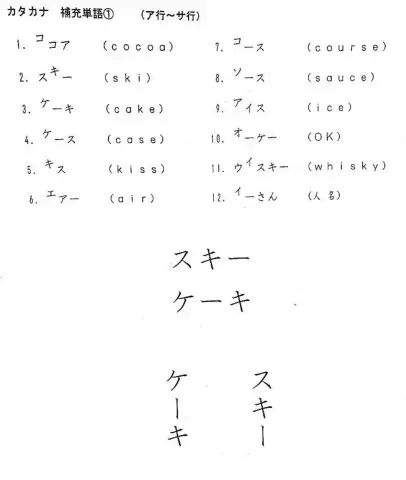 カタカナ 補充単語① (ア行～サ行)
1. ココア (cocoa)
2. スキー (ski)
3. ケーキ (cake)
4. ケース (case)
5. キス (kiss)
6. エアー (air)
7. コース (course)
8. ソース (sauce)
9. アイス (ice)
10. オーケー (OK)
11. ウイスキー (whisky)
12. イーさん (人名)
スキー
ケーキ
スキー
ケーキ